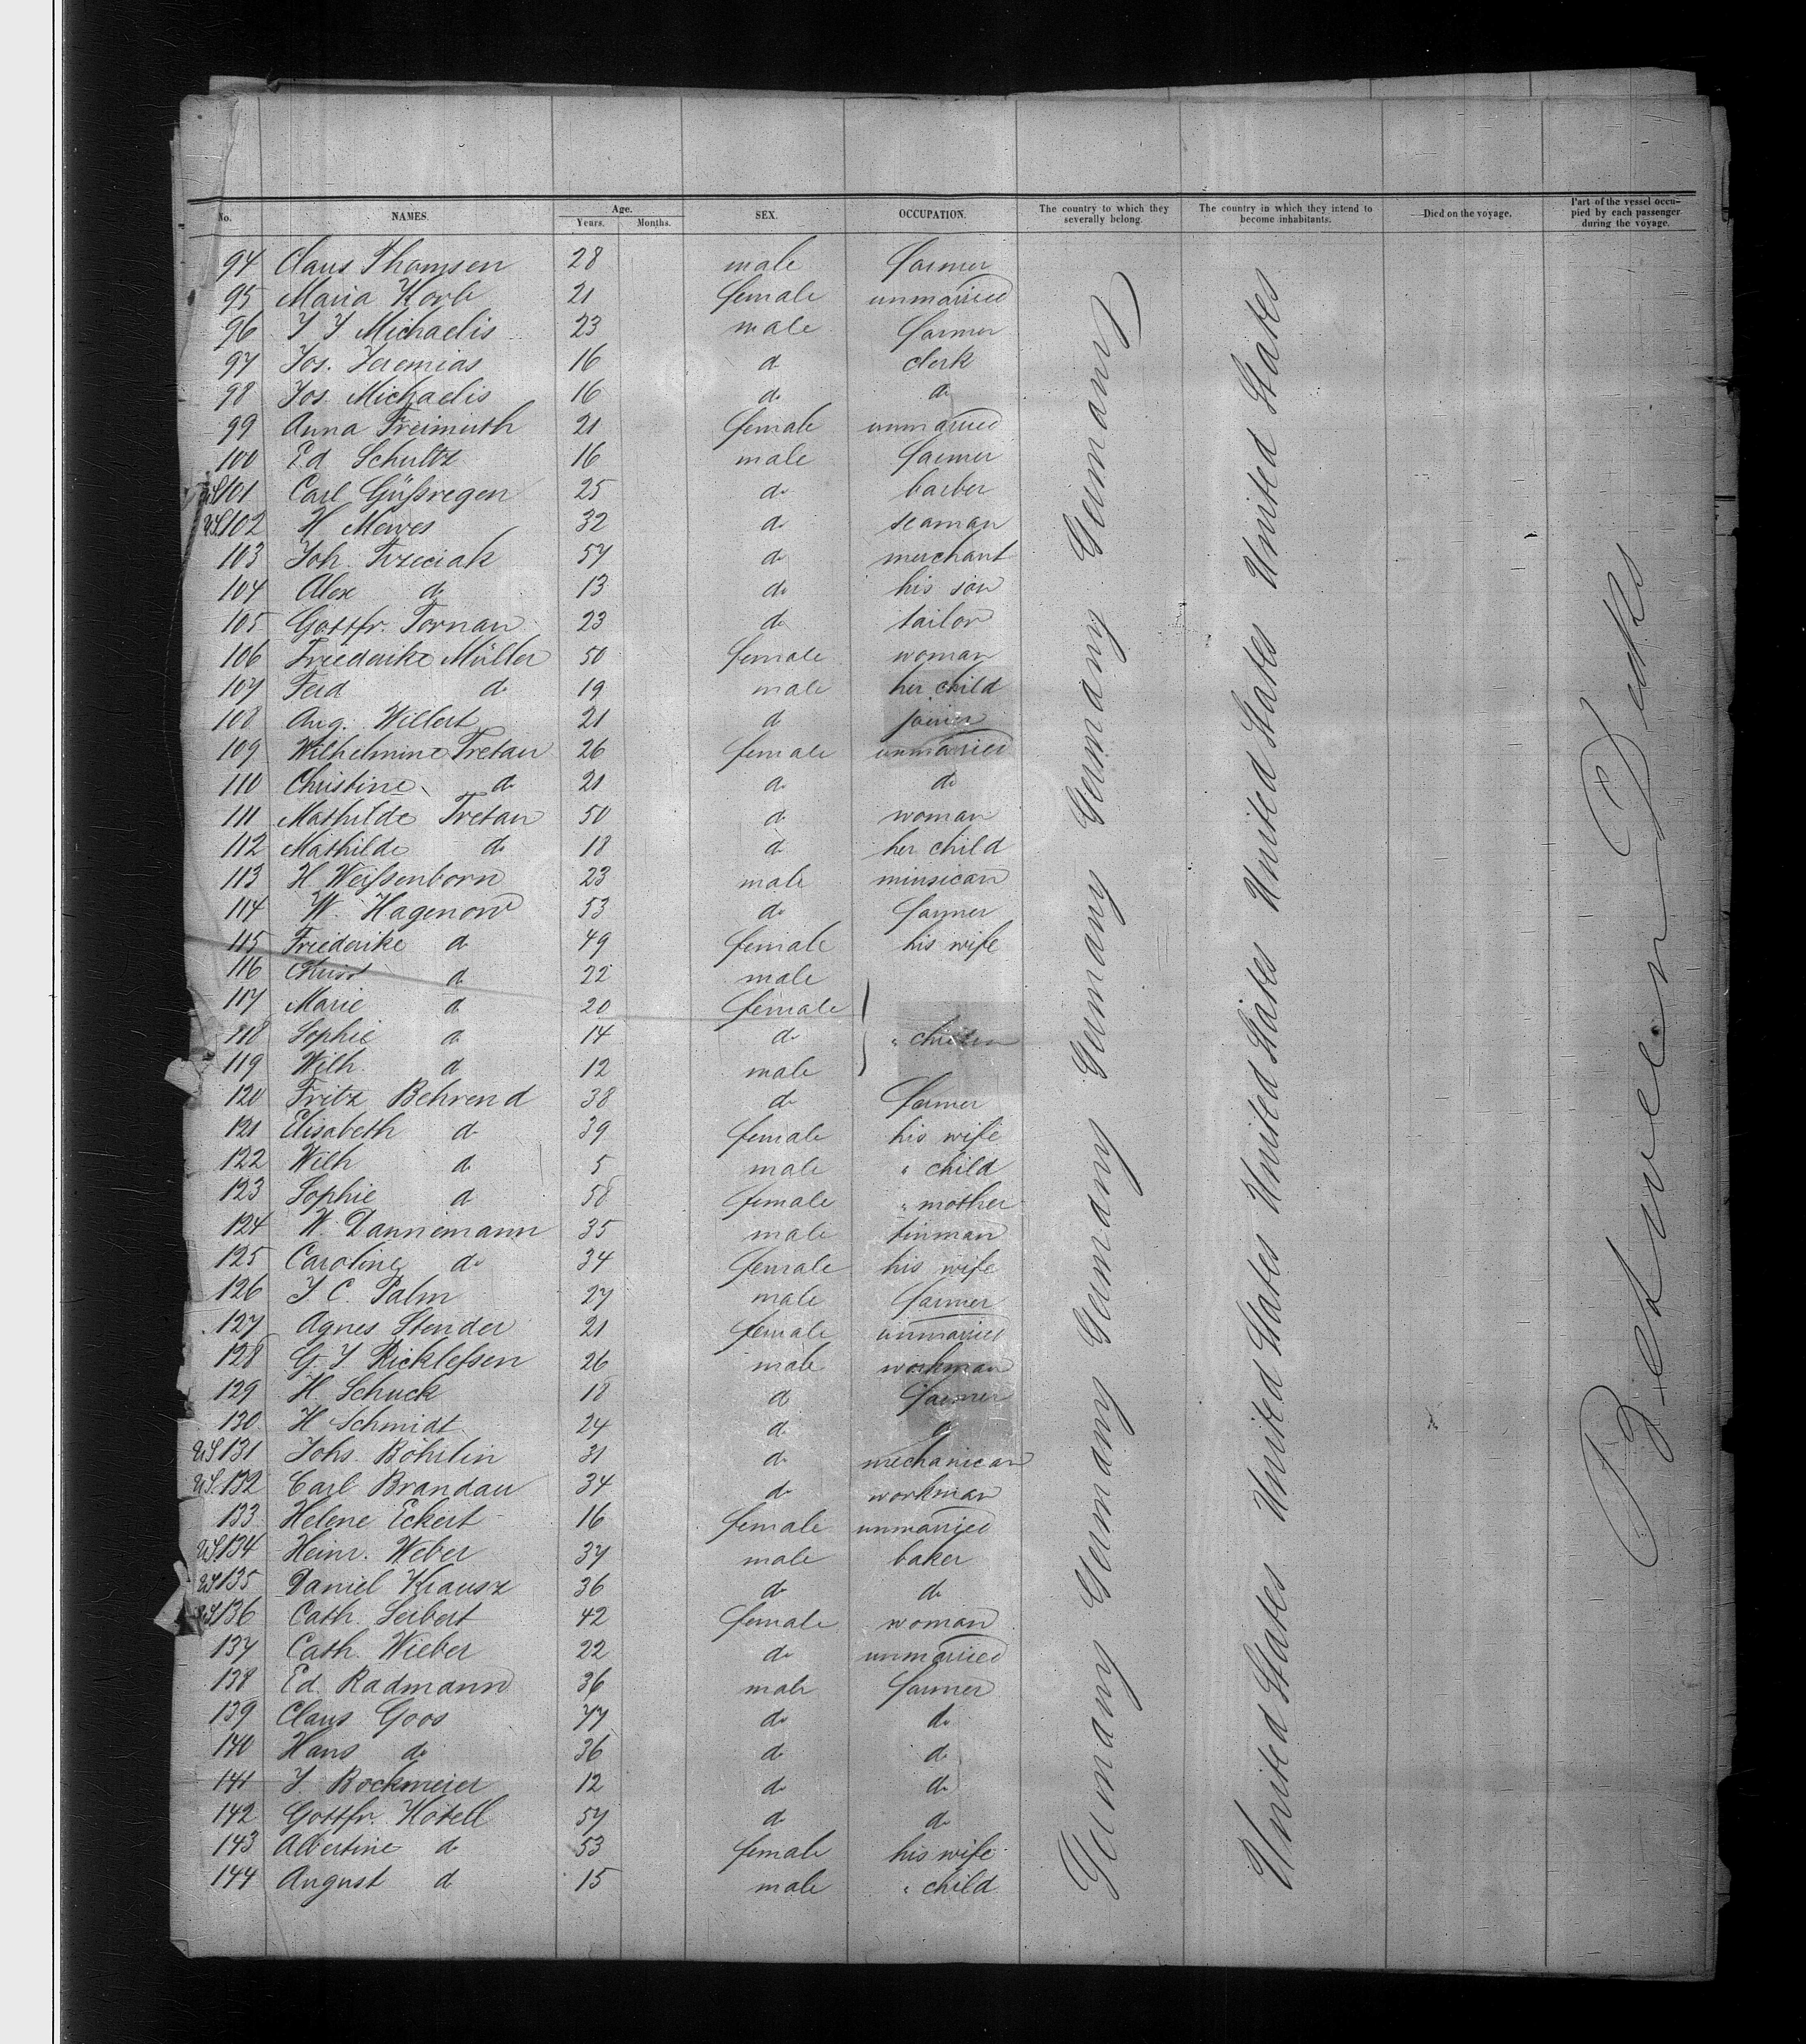 No. NAMES. Age. Years. Months. SEX. OCCUPATION. The country to which they severally belong. The country in which they intend to become inhabitants. Died on the voyage. Part of the vessel occupied by each passenger during the voyage.
94 Claus Thomsen 28 male farmer
95 Maria Korb 21 female unmarried
96 J J Michaelis 23 male farmer
97 Jos. Jeremias 16 do clerk
98 Jos. Michaelis 16 do do
99 Anna Freimuth 21 female unmarried
100 Ed Schultz 16 male farmer
US 101 Carl Güßregen 25 do barber
US 102 H Mewes 32 do seaman
103 Joh. Trzeciak 57 do merchant
104 Alex do 13 do his son
105 Gottfr. Tornau 23 do tailor
106 Friederike Müller 50 female woman
107 Ferd do 19 male her child
108 Aug. Willert 21 do joiner
109 Wilhelmine Tretau 26 female unmarried
110 Christine do 21 do do
111 Mathilde Tretau 50 do woman
112 Mathilde do 18 do her child
113 H Weißenborn 23 male minsican
114 W. Hagenow 53 do farmer
115 Friederike do 49 female his wife
116 Christ do 22 male
117 Marie do 20 female
118 Sophie do 14 do " children
119 Wilh. do 12 male
120 Fritz Behrend 38 do farmer
121 Elisabeth do 39 female his wife
122 Wilh do 5 male " child
123 Sophie do 58 female " mother
124 W. Danniemann 35 male tinman
125 Caroline do 34 female his wife
126 J C. Palm 27 male farmer
127 Agnes Stender 21 female unmarried
128 G. J Ricklefsen 26 male workman
129 H Schuck 18 do farmer
130 H Schmidt 24 do do
US 131 Johs. Böhrlin 31 do mechanican
US. 132 Carl Brandau 34 do workman
133 Helene Eckert 16 female unmarried
US 134 Heinr. Weber 37 male baker
US 135 Daniel Krausz 36 do do
US 136 Cath. Seibert 42 female woman
137 Cath. Wieber 22 do unmarried
138 Ed. Radmann 36 male farmer
139 Claus Goos 77 do do
140 Hans do 36 do do
141 J. Bockmeier 12 do do
142 Gottfr. Kotell 57 do do
143 Albertine do 53 female his wife
144 August do 15 male " child
Germany Germany Germany Germany Germany Germany Germany
United States United States United States United States United States United States United States
Between Decks